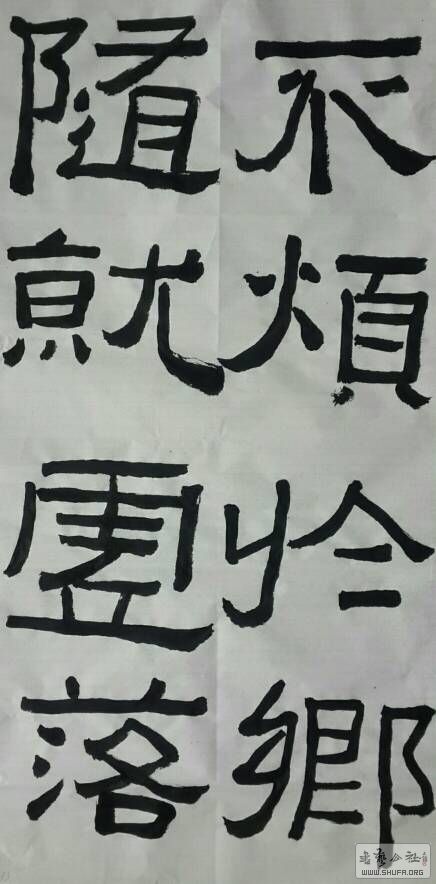 不煩於鄉
隨就虛落
書藝公社
WWW.SHUFA.ORG